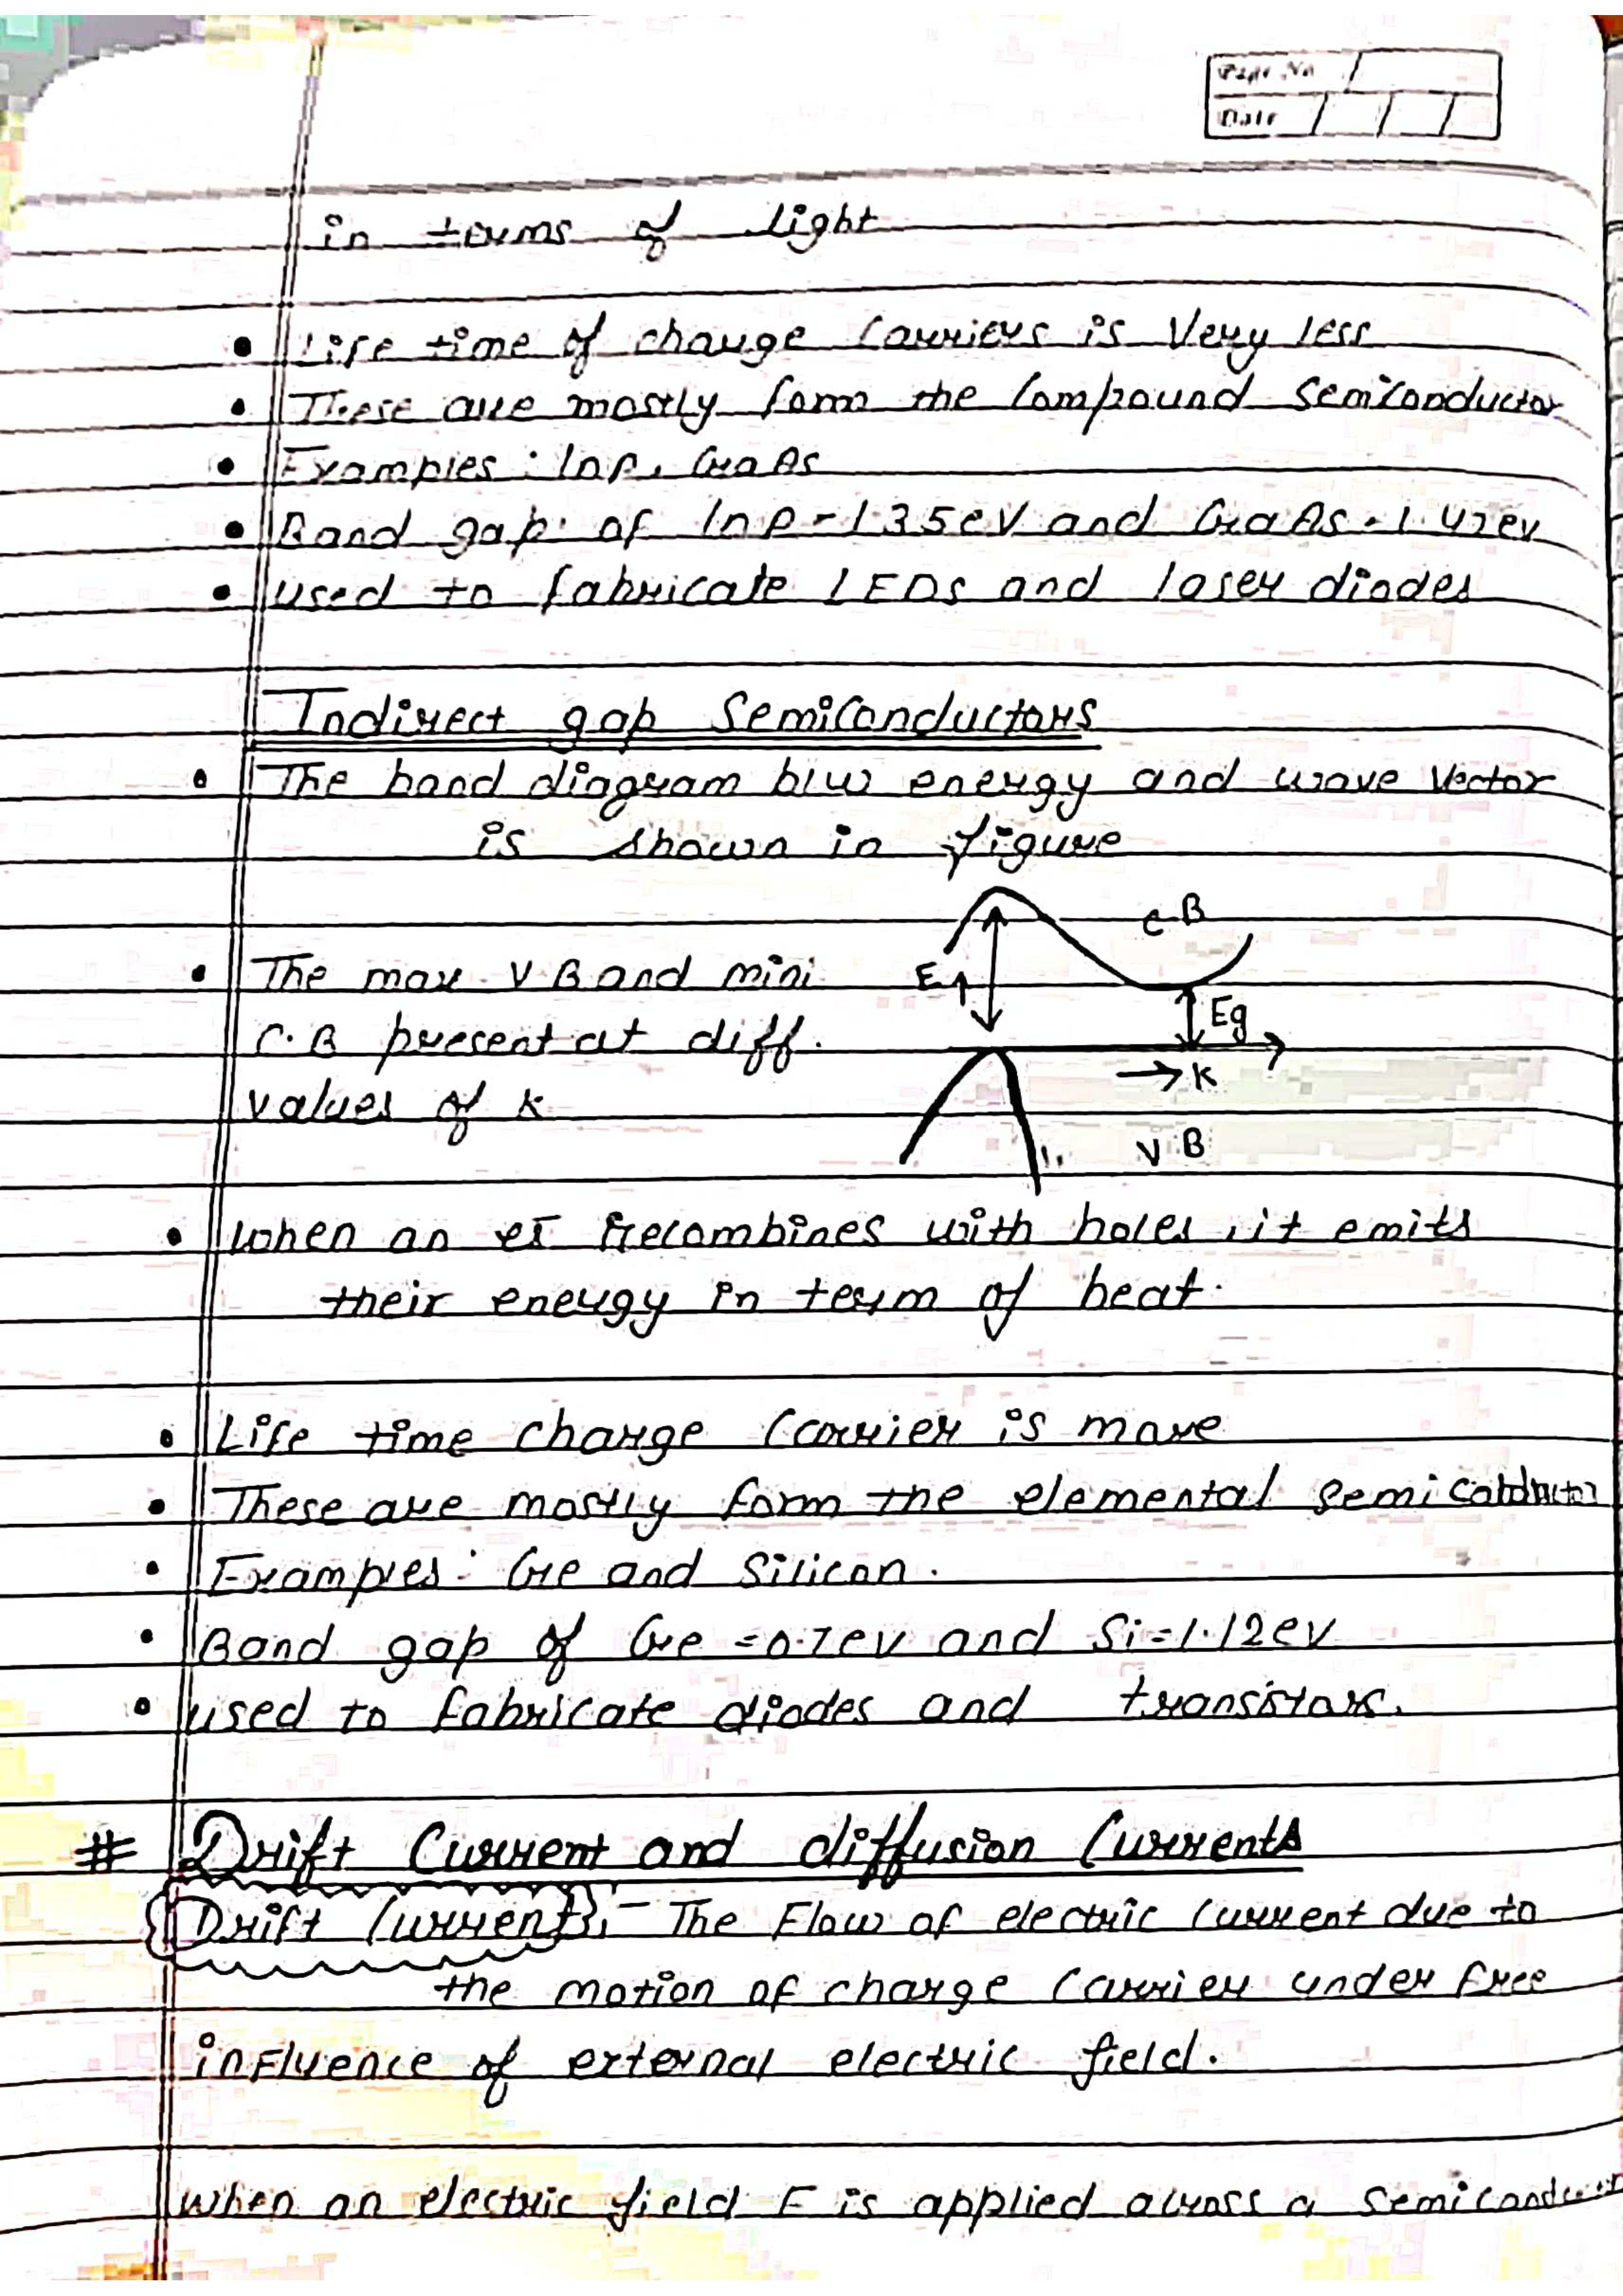 Page No
Date
in terms of light
• Life time of charge Carriers is Very less
• These are mostly form the Compound Semiconductor
• Examples : InP, GaAs
• Band gap of InP-1.35eV and GaAs-1.42ev
• used to fabricate LEDs and laser diodes
Indirect gap Semiconductors
• The band diagram b/w energy and wave Vector
is shown in figure
C B
• The max V.B and mini
E
Eg
C.B present at diff.
→ K
values of k
V B
• When an es recombines with holes, it emits
their energy in term of heat.
• Life time charge Carrier is more
• These are mostly form the elemental semiconductor
• Examples: Ge and Silicon.
• Band gap of Ge =0.7ev and Si=1.12ev
• used to fabricate diodes and transistors.
# Drift Current and diffusion Currents
Drift Current :- The Flow of electric Current due to
the motion of charge Carrier under free
influence of external electric field.
When an electric field E is applied across a Semiconductor